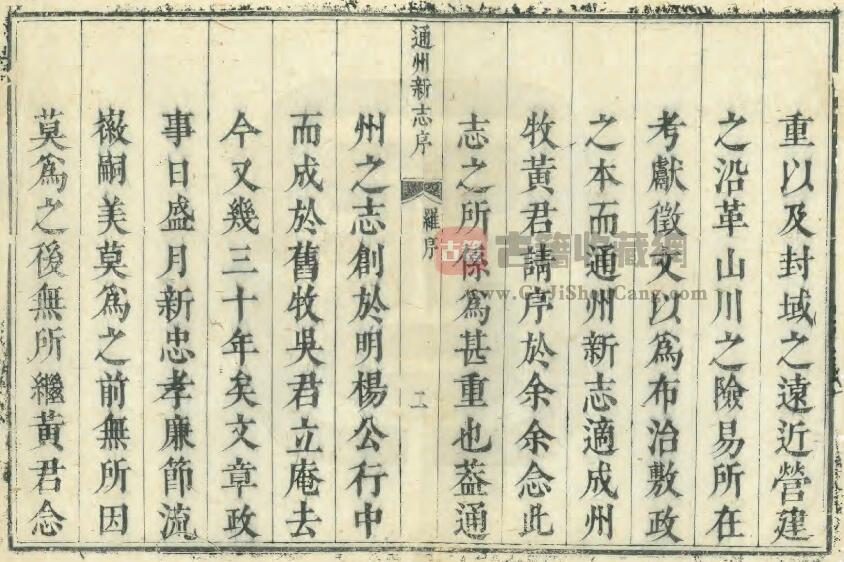 重以及封域之遠近營建
之沿革山川之險易所在
考獻徵文以爲布治敷政
之本而通州新志適成州
牧黃君請序於余余念此
志之所係爲甚重也葢通
通州新志序
羅序
二
州之志創於明楊公行中
而成於舊牧吳君立庵去
今又幾三十年矣文章政
事日盛月新忠孝廉節流
徽嗣美莫爲之前無所因
莫爲之後無所繼黃君念
古籍
古籍收藏網
www.GuJiShouCang.com